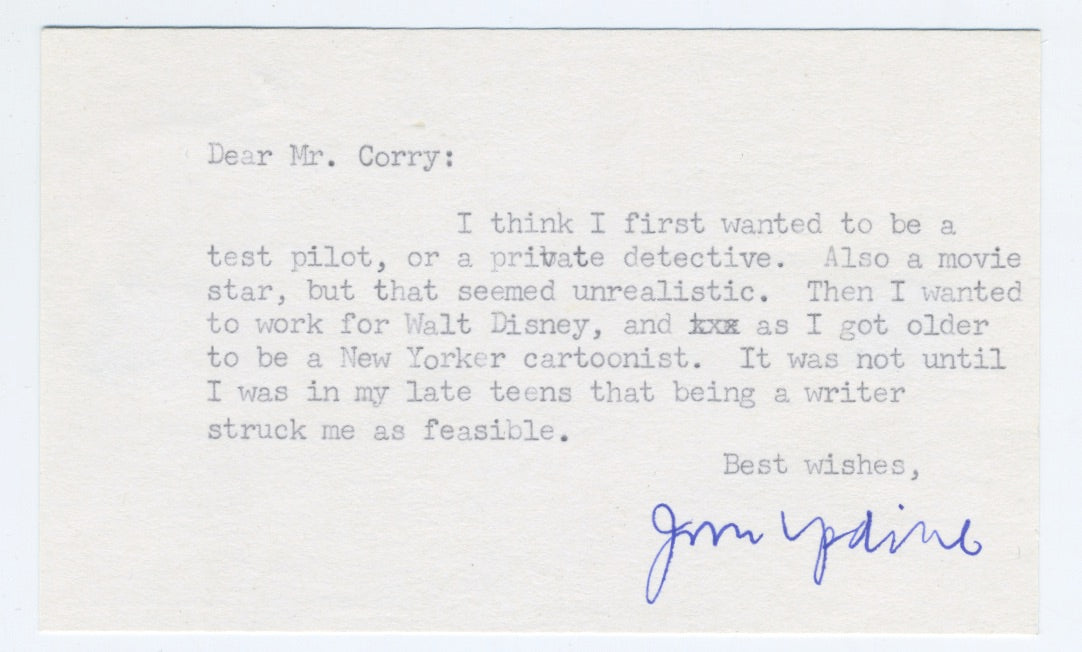 Dear Mr. Corry:
I think I first wanted to be a
test pilot, or a private detective.  Also a movie
star, but that seemed unrealistic.  Then I wanted
to work for Walt Disney, and xxx as I got older
to be a New Yorker cartoonist.  It was not until
I was in my late teens that being a writer
struck me as feasible.
Best wishes,
John Updike